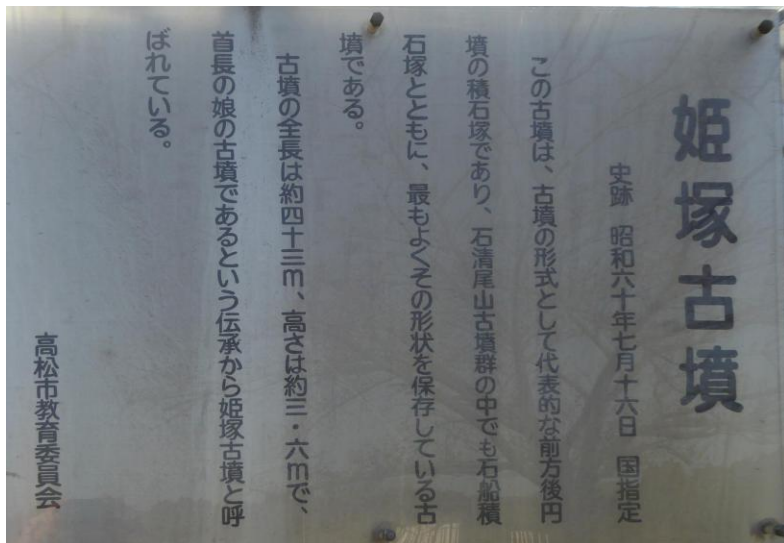 姫塚古墳
史跡　昭和六十年七月十六日　国指定
この古墳は、古墳の形式として代表的な前方後円
墳の積石塚であり、石清尾山古墳群の中でも石船積
石塚とともに、最もよくその形状を保存している古
墳である。
古墳の全長は約四十三m、高さは約三・六mで、
首長の娘の古墳であるという伝承から姫塚古墳と呼
ばれている。
高松市教育委員会